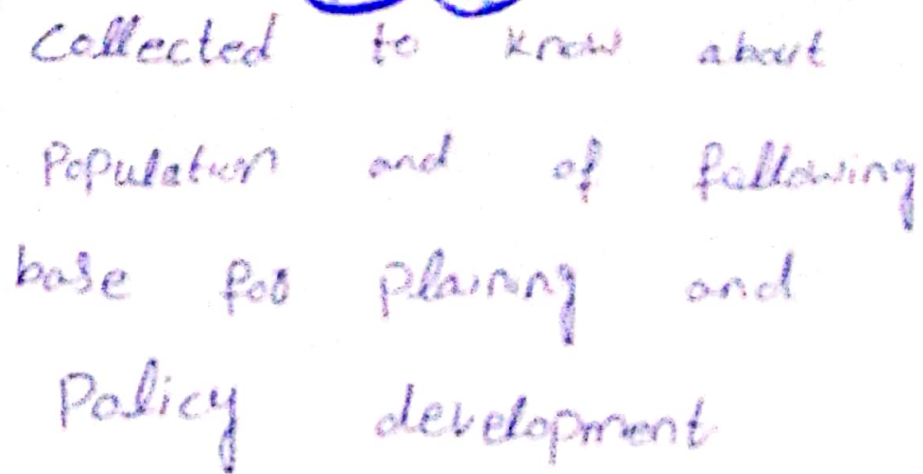 Collected to know about
Population and of following
base for planing and
Policy development